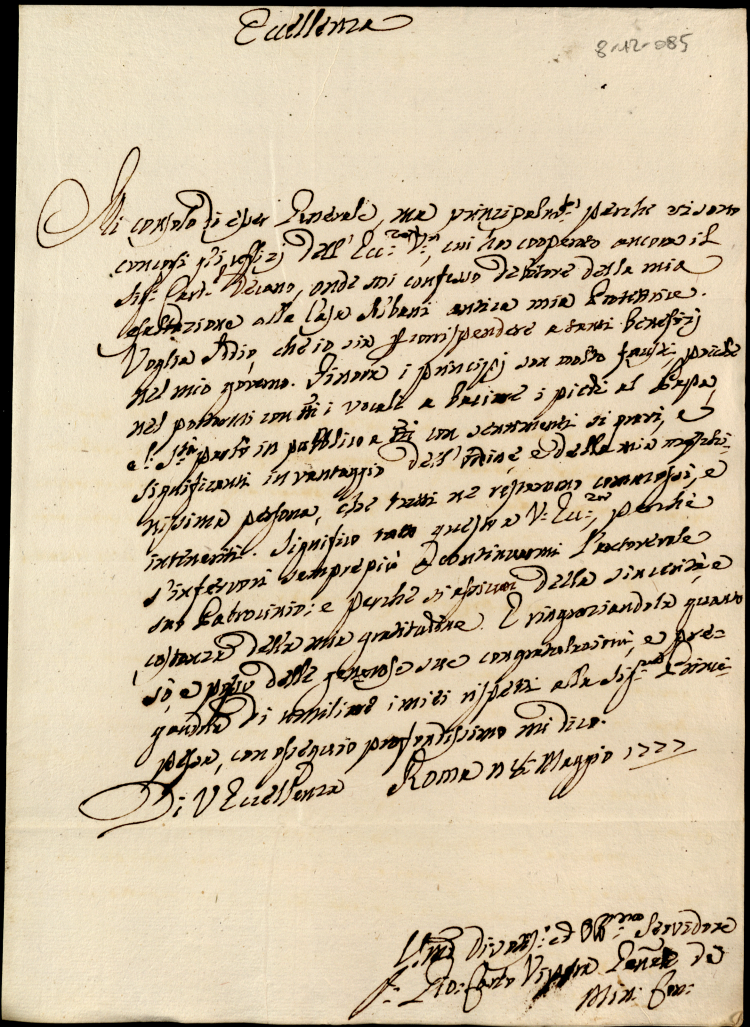 Eccellenza
8-12-085
Mi consolo di esser Generale, ma principalmte perche vi sono
concorsi gl'uffizj dell' Eccza Vra, cui ha cooperato ancora il
Sigr Card. Decano, onde mi confesso debitore della mia
esaltazione alla Casa Albani antica mia Protettrice.
Voglia Iddio, che io sia corrispondere a tanti benefizj
nel mio governo. Finora i principj son molto fausti, poiche
nel portarmi con tti i vocali a baciare i piedi al Papa,
e S. Stà parlò in pubblico a tti con sentimenti si gravi, e
significanti in vantaggio dell' Ordine, e della mia meschi-
nissima persona, che tutti ne restarono commossi, e
inteneriti. Significo tutto questo a V. Ecc.za, perchè
s'infervori semprepiù a continuarmi l'autorevole
suo Patrocinio; e perche si assicuri della sincerità, e
costanza della mia gratitudine. E ringraziandola quanto
so, e posso delle generose sue congratulazioni, e pre-
gandola di umiliare i miei rispetti alla Sigra Princi-
pessa, con ossequio profondissimo mi dico.
Di V Eccellenza Roma Maggio 1777
Umo Divotmo ed Obbmo Servidore
F. Genle de
Min. Con.